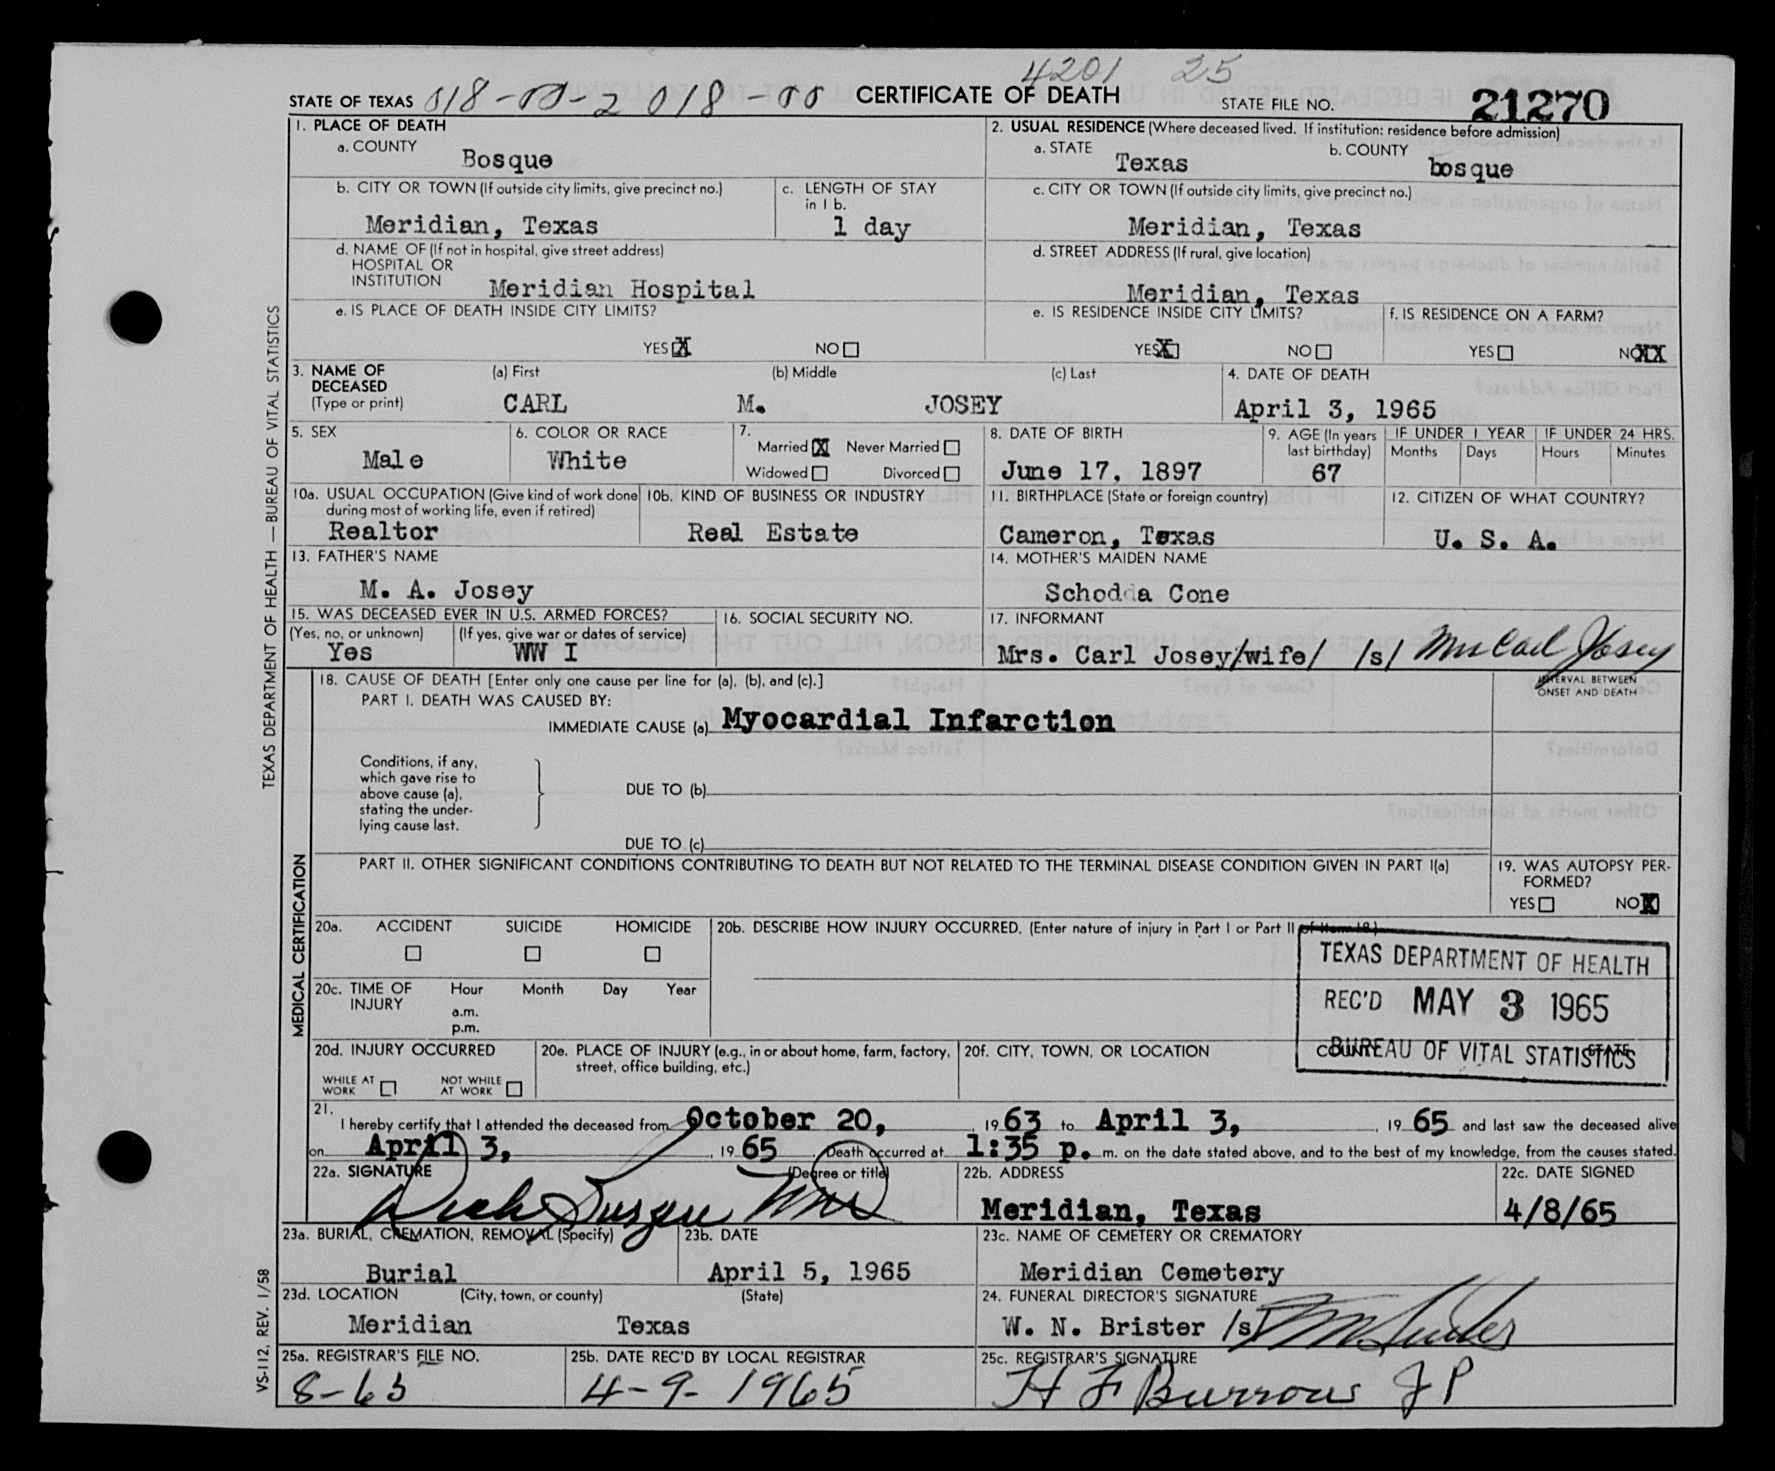 4201 25
STATE OF TEXAS 018-00-2 018-00 CERTIFICATE OF DEATH STATE FILE NO. 21270
1. PLACE OF DEATH
a. COUNTY Bosque
2. USUAL RESIDENCE (Where deceased lived. If institution: residence before admission)
a. STATE Texas b. COUNTY bosque
b. CITY OR TOWN (If outside city limits, give precinct no.) Meridian, Texas
c. LENGTH OF STAY in 1 b. 1 day
c. CITY OR TOWN (If outside city limits, give precinct no.) Meridian, Texas
d. NAME OF (If not in hospital, give street address)
HOSPITAL OR
INSTITUTION Meridian Hospital
d. STREET ADDRESS (If rural, give location)
Meridian, Texas
e. IS PLACE OF DEATH INSIDE CITY LIMITS?
YES X NO
e. IS RESIDENCE INSIDE CITY LIMITS?
YES X NO
f. IS RESIDENCE ON A FARM?
YES NO XX
3. NAME OF DECEASED (Type or print)
(a) First (b) Middle (c) Last
CARL M. JOSEY
4. DATE OF DEATH
April 3, 1965
5. SEX
Male
6. COLOR OR RACE
White
7. Married X Never Married
Widowed Divorced
8. DATE OF BIRTH
June 17, 1897
9. AGE (In years last birthday)
67
IF UNDER 1 YEAR IF UNDER 24 HRS.
Months Days Hours Minutes
10a. USUAL OCCUPATION (Give kind of work done during most of working life, even if retired)
Realtor
10b. KIND OF BUSINESS OR INDUSTRY
Real Estate
11. BIRTHPLACE (State or foreign country)
Cameron, Texas
12. CITIZEN OF WHAT COUNTRY?
U. S. A.
13. FATHER'S NAME
M. A. Josey
14. MOTHER'S MAIDEN NAME
Schodda Cone
15. WAS DECEASED EVER IN U.S. ARMED FORCES?
(Yes, no, or unknown) (If yes, give war or dates of service)
Yes WW I
16. SOCIAL SECURITY NO.
17. INFORMANT
Mrs. Carl Josey/wife/ /s/ Mrs Carl Josey
18. CAUSE OF DEATH [Enter only one cause per line for (a), (b), and (c).]
INTERVAL BETWEEN
ONSET AND DEATH
PART I. DEATH WAS CAUSED BY:
IMMEDIATE CAUSE (a) Myocardial Infarction
Conditions, if any,
which gave rise to
above cause (a),
stating the under-
lying cause last.
DUE TO (b)
DUE TO (c)
PART II. OTHER SIGNIFICANT CONDITIONS CONTRIBUTING TO DEATH BUT NOT RELATED TO THE TERMINAL DISEASE CONDITION GIVEN IN PART I(a)
19. WAS AUTOPSY PER-
FORMED?
YES NO X
20a. ACCIDENT SUICIDE HOMICIDE
20b. DESCRIBE HOW INJURY OCCURRED. (Enter nature of injury in Part I or Part II of Item 18.)
20c. TIME OF INJURY Hour Month Day Year
a.m.
p.m.
TEXAS DEPARTMENT OF HEALTH
REC'D MAY 3 1965
BUREAU OF VITAL STATISTICS
20d. INJURY OCCURRED
WHILE AT WORK NOT WHILE AT WORK
20e. PLACE OF INJURY (e.g., in or about home, farm, factory, street, office building, etc.)
20f. CITY, TOWN, OR LOCATION COUNTY STATE
21.
I hereby certify that I attended the deceased from October 20, 1963 to April 3, 1965 and last saw the deceased alive
on April 3, 1965. Death occurred at 1:35 p. m. on the date stated above, and to the best of my knowledge, from the causes stated.
22a. SIGNATURE (Degree or title)
22b. ADDRESS
Meridian, Texas
22c. DATE SIGNED
4/8/65
23a. BURIAL, CREMATION, REMOVAL (Specify)
Burial
23b. DATE
April 5, 1965
23c. NAME OF CEMETERY OR CREMATORY
Meridian Cemetery
23d. LOCATION (City, town, or county) (State)
Meridian Texas
24. FUNERAL DIRECTOR'S SIGNATURE
W. N. Brister /s/
25a. REGISTRAR'S FILE NO.
8-65
25b. DATE REC'D BY LOCAL REGISTRAR
4-9-1965
25c. REGISTRAR'S SIGNATURE
H F Burrows JP
TEXAS DEPARTMENT OF HEALTH — BUREAU OF VITAL STATISTICS
MEDICAL CERTIFICATION
VS-112, REV. 1/58